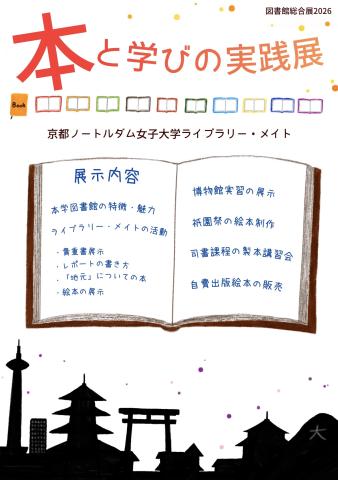 図書館総合展2026
本と学びの実践展
Book
京都ノートルダム女子大学ライブラリー・メイト
展示内容
本学図書館の特徴・魅力
ライブラリー・メイトの活動
・貴重書展示
・レポートの書き方
・「地元」についての本
・絵本の展示
博物館実習の展示
祇園祭の絵本制作
司書課程の製本講習会
自費出版絵本の販売
大